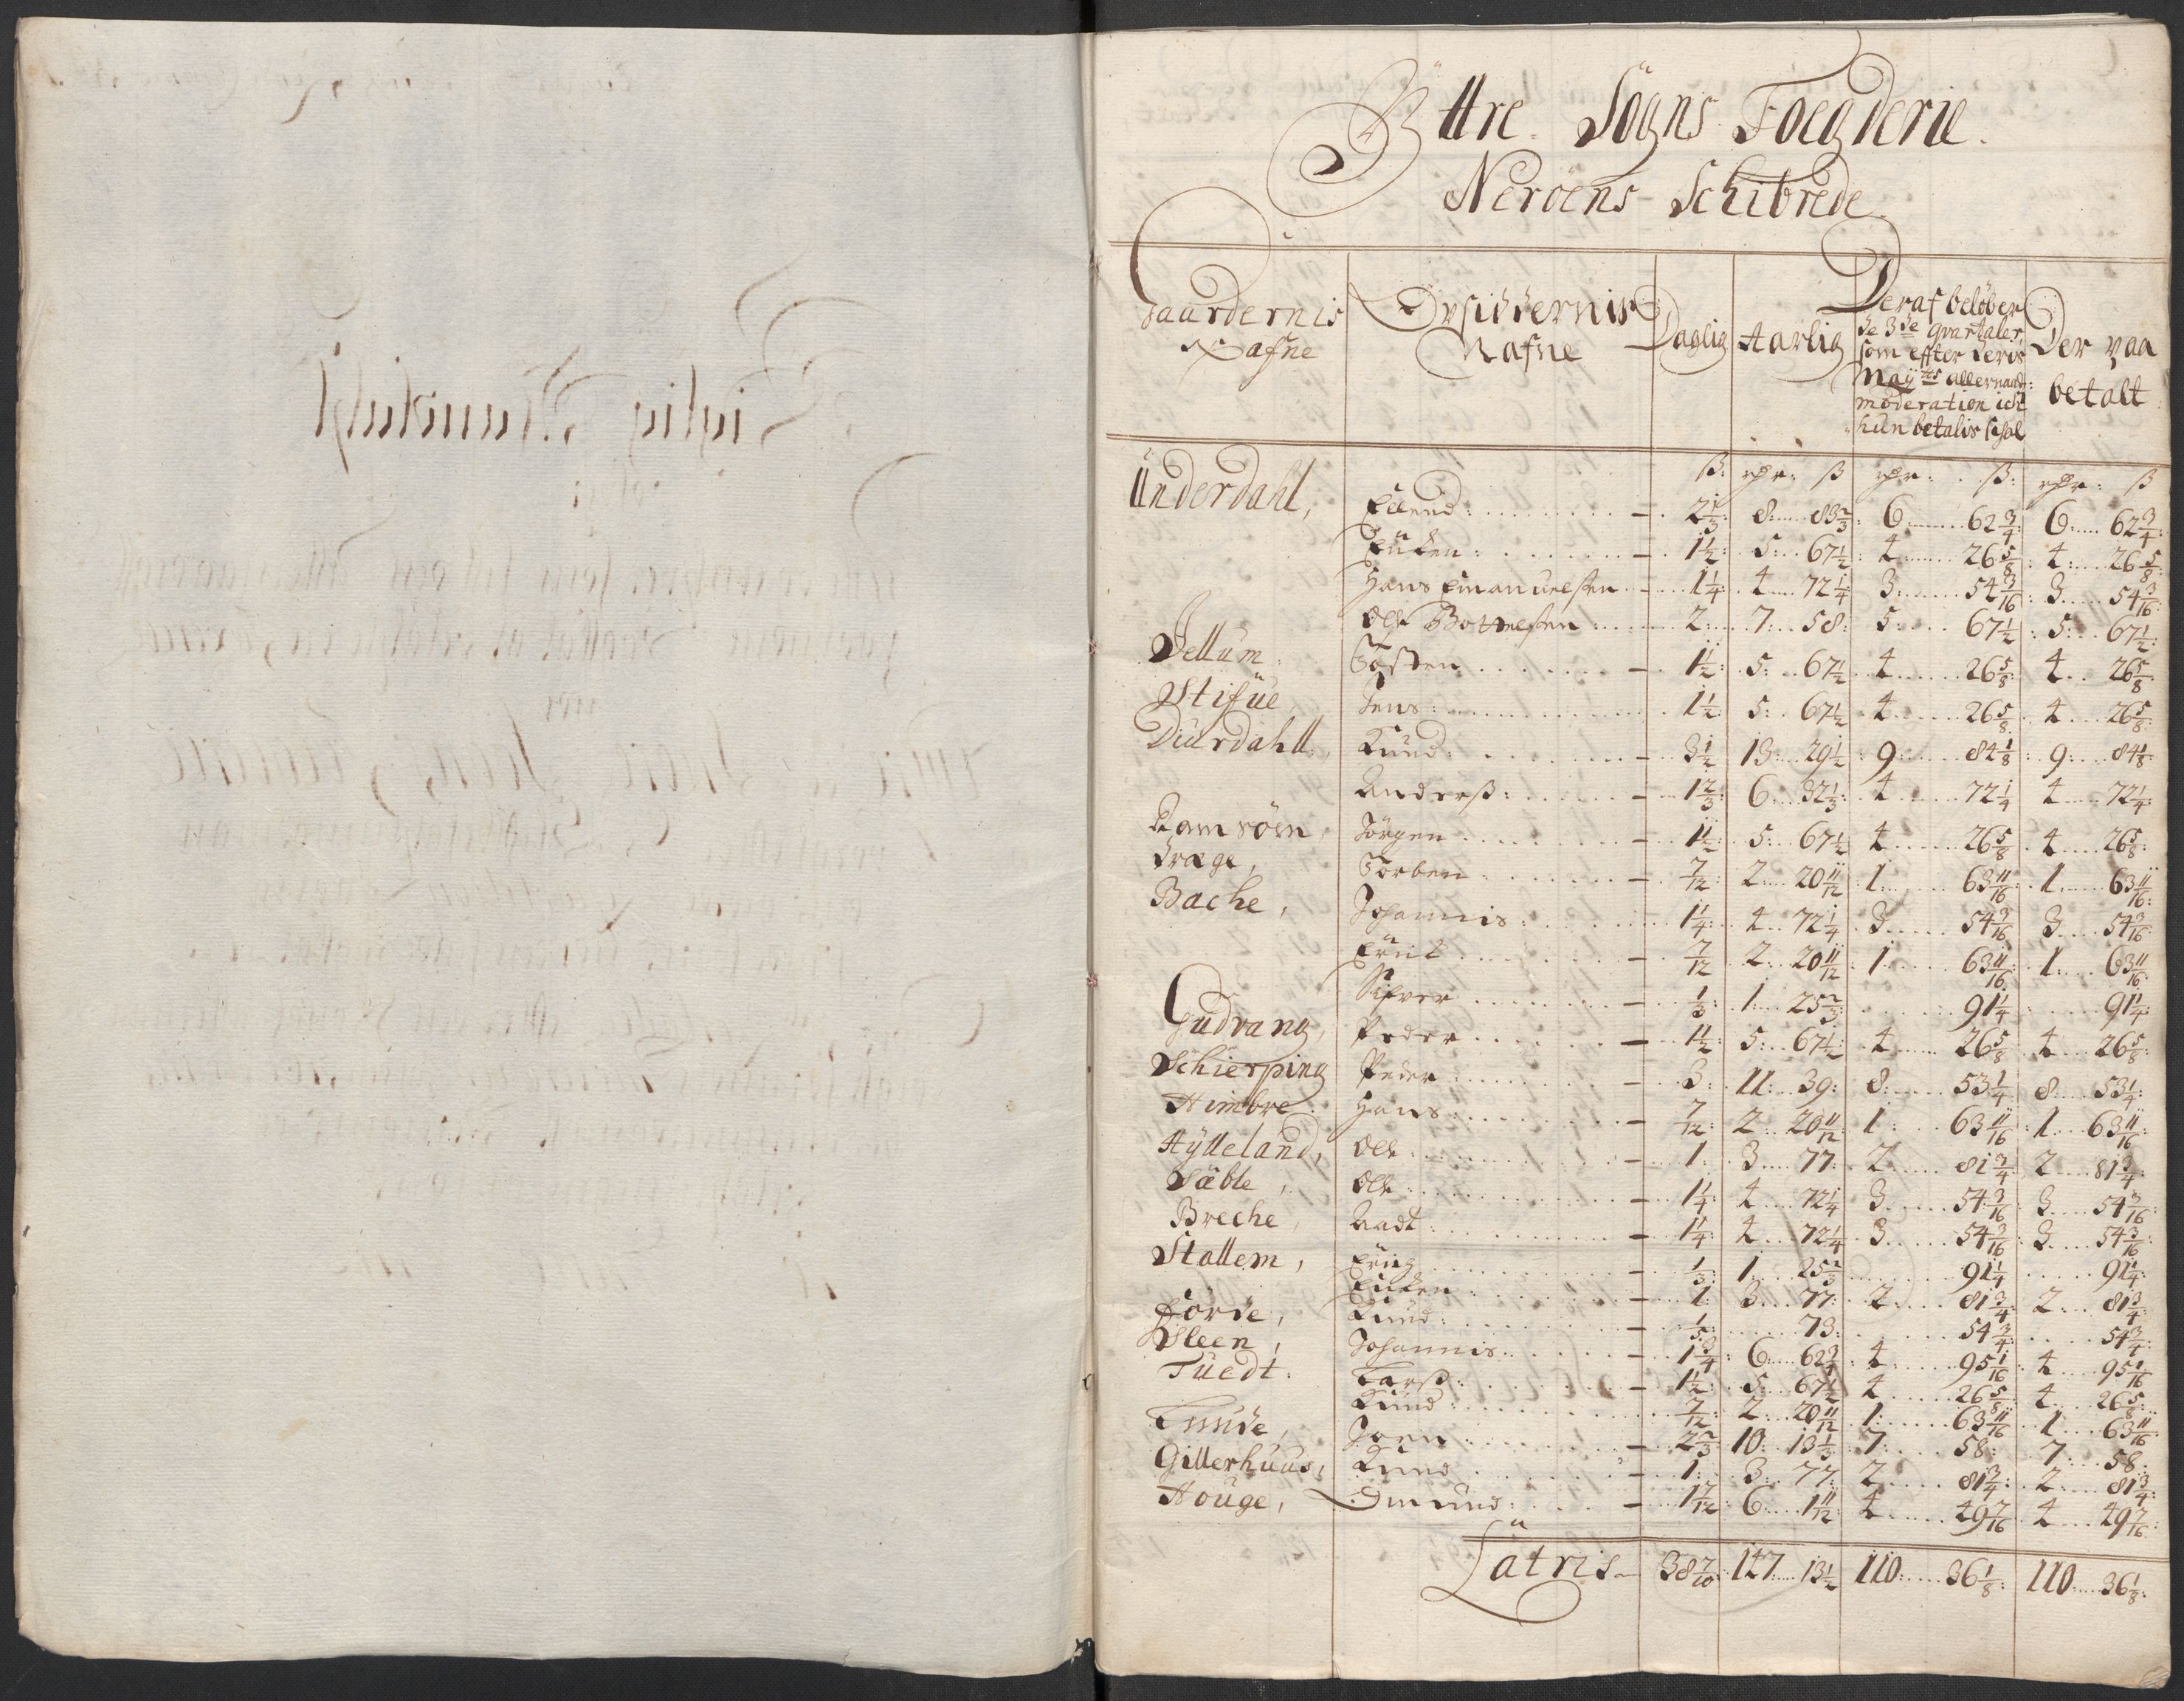 Yttre Sogns Foegderie.
Neröens Schibrede
Gaardernis Nafne | Opsiddernis Nafne | Daglig | Aarlig | Deraf beløber de 3de qvartaler, som effter deris Mayts allernaad: moderation ich hun betalis schal | Der paa betalt
ß: | rdr: ß | rdr: ß: | rdr: ß
Underdahl, Ellend: 2 1/3: 8: 83 2/3: 6 62 3/4: 6: 62 3/4:
1 1/2: 5: 67 1/2: 4 26 5/8: 4: 26 5/8:
Hans Emanuelsen 1 1/4: 4 72 1/4: 3 54 3/16: 3 54 3/16:
Ole Bottelsen 2: 7: 58: 5: 67 1/2: 5: 67 1/2:
Dellum Tosten 1 1/2: 5: 67 1/2: 4 26 5/8: 4 26 5/8:
Stifue, Jens: 1 1/2: 5: 67 1/2: 4 26 5/8: 4 26 5/8:
Diurdahll, Knud: 3 1/2: 13: 29 1/2: 9: 84 1/8: 9: 84 1/8:
Anderß: 1 2/3: 6 32 1/3: 4 72 1/4: 4 72 1/4:
Ramsöen, Jörgen 1 1/2: 5: 67 1/2: 4 26 5/8: 4 26 5/8:
Drage, Torben 7/12: 2 20 11/12: 1: 63 11/16: 1 63 11/16:
Bache, Johannis: 1 1/4: 4 72 1/4: 3 54 3/16: 3 54 3/16:
7/12 2 20 11/12: 1 63 11/16: 1 63 11/16:
Sifver 1/3: 1 25 2/3: 91 1/4: 91 1/4:
Gudvang, Peder 1 1/2: 5: 67 1/2: 4 26 5/8: 4 26 5/8:
Schierping Peder 3: 11: 39: 8: 53 1/4: 8 53 1/4:
Himbre Hans 7/12: 2 20 11/12: 1 63 11/16: 1 63 11/16:
Hylleland, Ole 1 3 77: 2 81 3/4: 2 81 3/4:
Säble, Ole 1 1/4: 4 72 1/4: 3 54 3/16: 3 54 3/16:
Breche, Aadt 1 1/4: 4 72 1/4: 3 54 3/16: 3 54 3/16:
Stallem, Erug 1/3: 1 25 2/3: 91 1/4: 91 1/4:
1 3 77: 2 81 3/4: 2 81 3/4:
Förde, Knud: 1/5: 73: 54 3/4: 54 3/4:
Steen, Johannis 1 3/4: 6 62 3/4: 4 95 1/16: 4 95 1/16:
Tuedt. Larß: 1 1/2: 5: 67 1/2: 4 26 5/8: 4 26 5/8:
Knud: 7/12: 2 20 11/12: 1: 63 11/16: 1 63 11/16
Joen 2 2/3: 10: 13 1/3: 7: 58: 7: 58:
Gillerhuus, Knud 1: 3: 77: 2 81 3/4: 2 81 3/4:
Houge, Omund: 1 7/12: 6 1 11/12: 4 49 7/16: 4 49 7/16:
Latris 38 7/10: 147 13 1/2: 110: 36 1/8: 110 36 1/8: